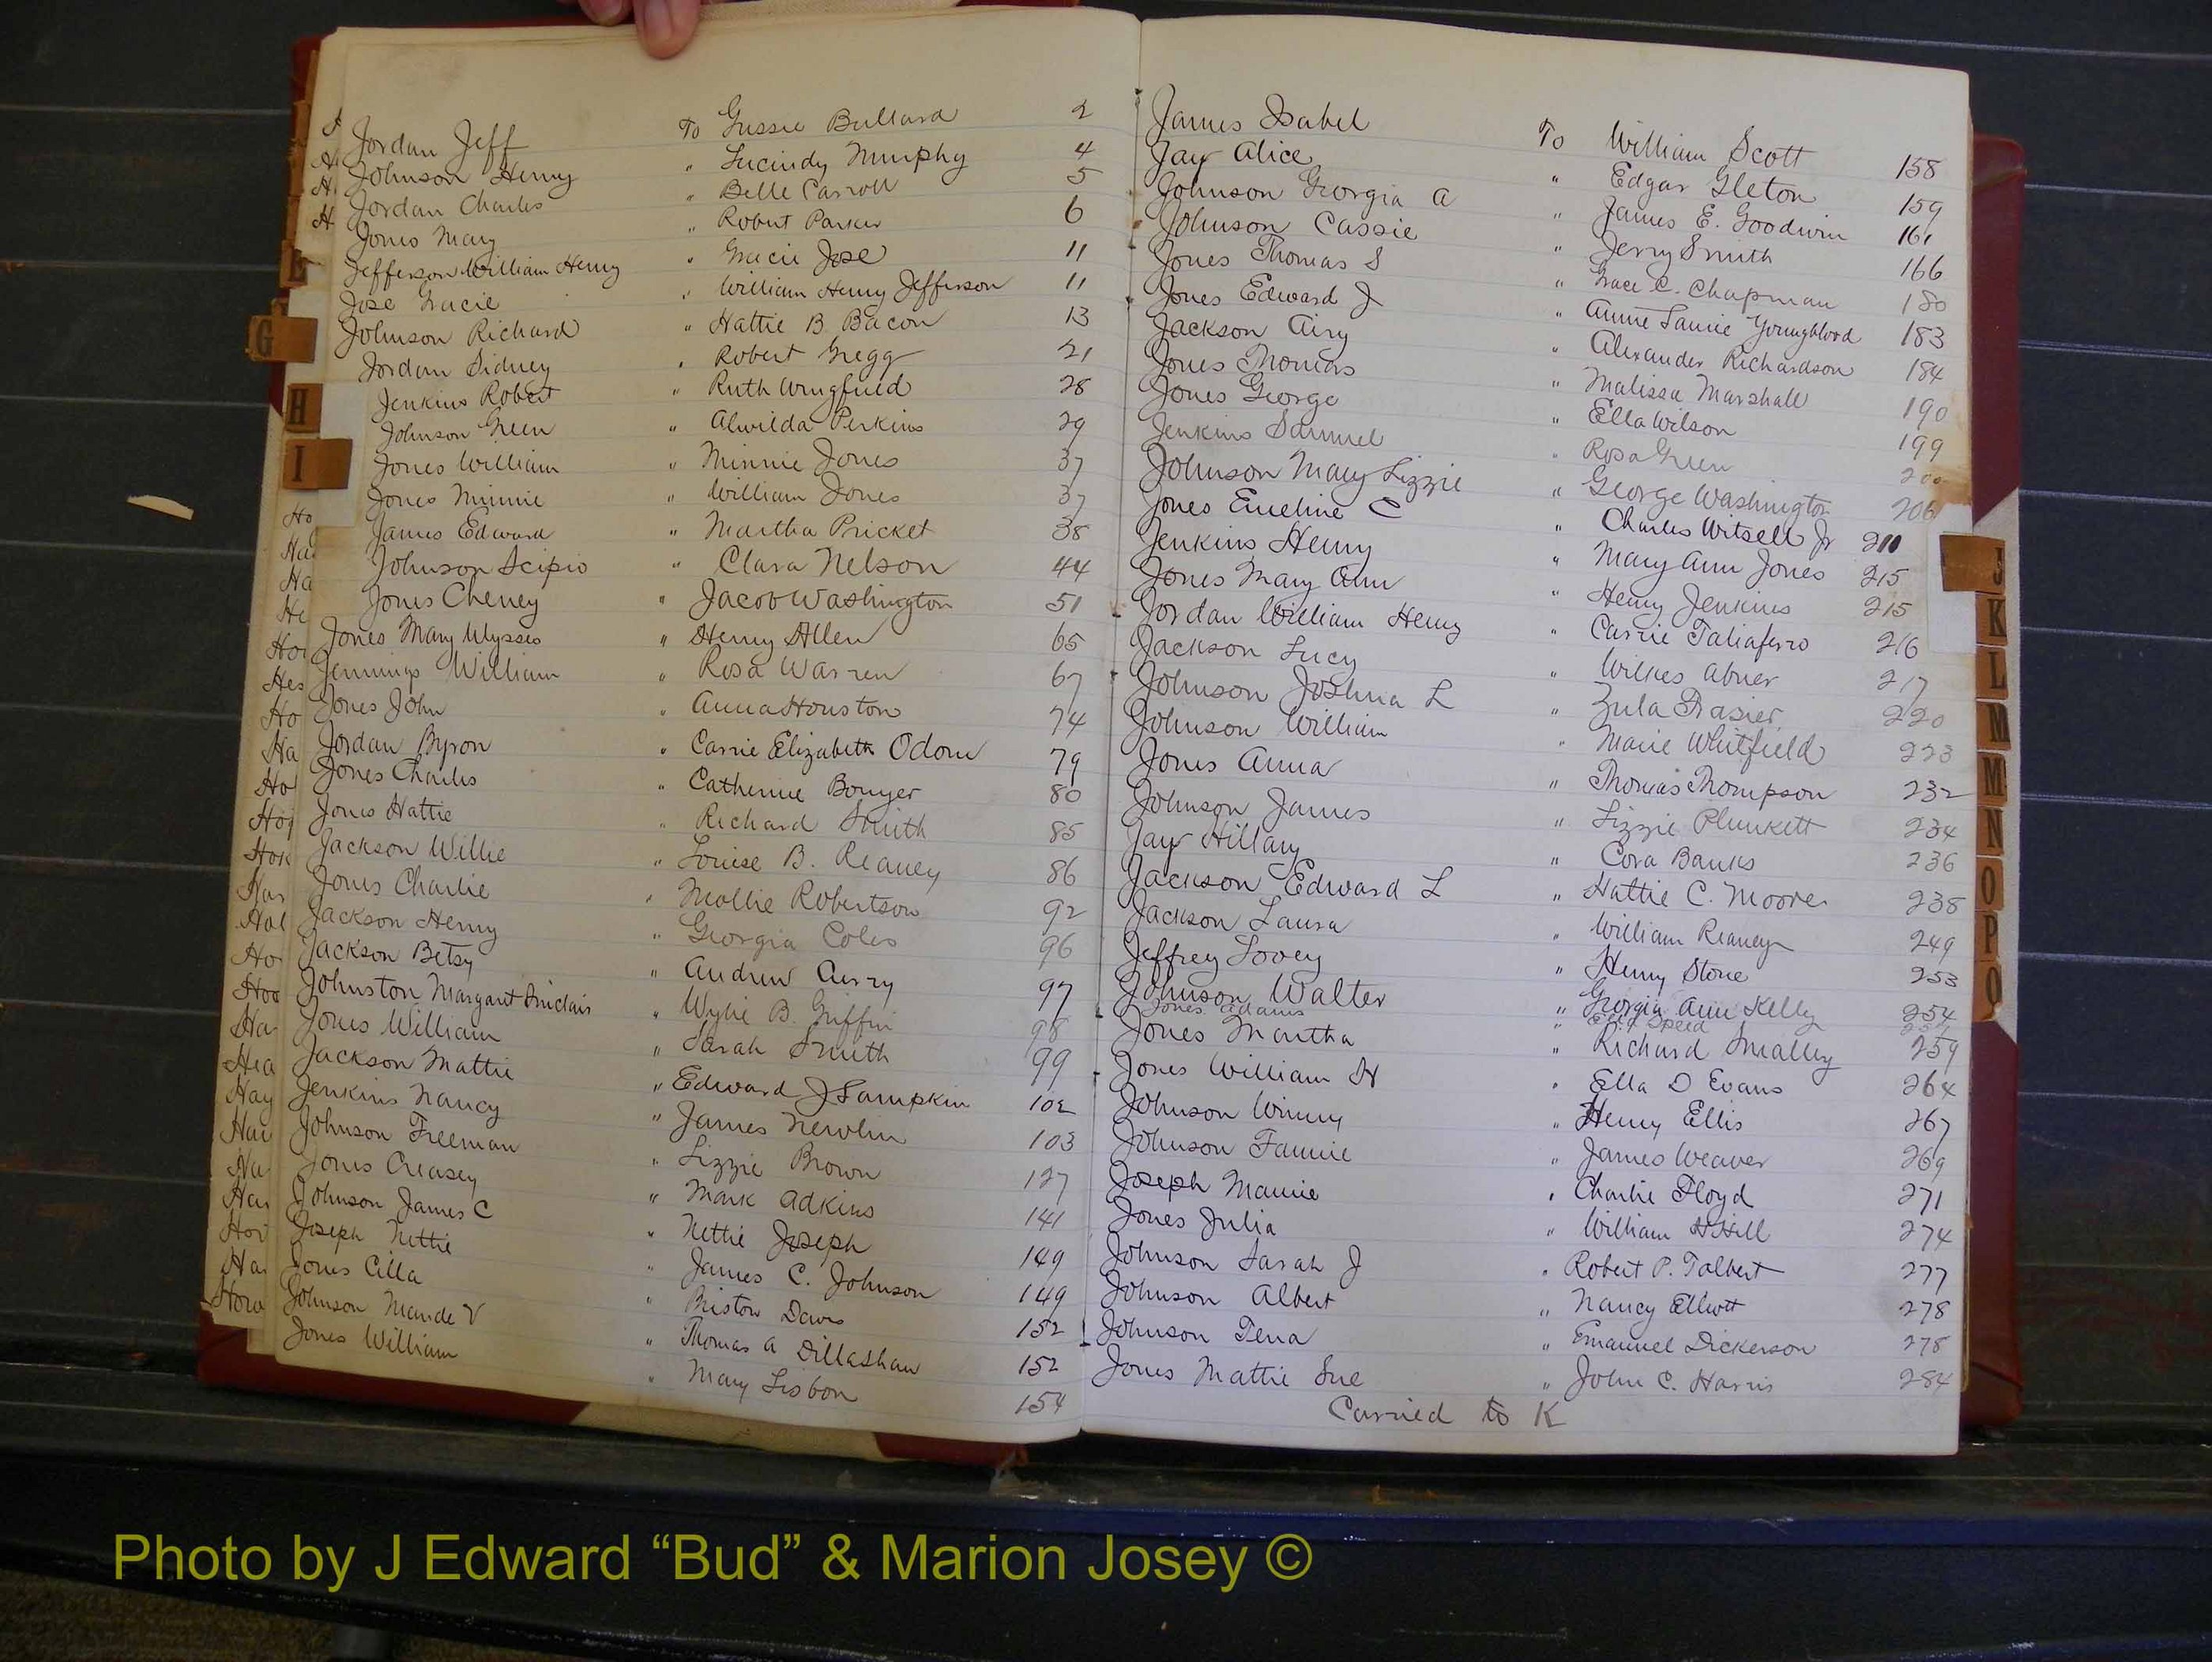 Jordan Jeff To Gussie Bullard 2
Johnson Henry " Lucindy Murphy 4
Jordan Charles " Belle Carroll 5
Jones Mary " Robert Parker 6
Jefferson William Henry " Gracie Jose 11
Jose Gracie " William Henry Jefferson 11
Johnson Richard " Hattie B. Bacon 13
Jordan Sidney " Robert Gregg 21
Jenkins Robert " Ruth Wingfield 28
Johnson Green " Alwilda Perkins 29
Jones William " Minnie Jones 37
Jones Minnie " William Jones 37
James Edward " Martha Pricket 38
Johnson Scipio " Clara Nelson 44
Jones Cheney " Jacob Washington 51
Jones Mary Ulysses " Henry Allen 65
Jennings William " Rosa Warren 67
Jones John " Anna Houston 74
Jordan Byron " Carrie Elizabeth Odom 79
Jones Charles " Catherine Bouyer 80
Jones Hattie " Richard Smith 85
Jackson Willie " Louise B. Reaney 86
Jones Charlie " Mollie Robertson 92
Jackson Henry " Georgia Coles 96
Jackson Betsy " Andrew Averry 97
Johnston Margaret Sinclair " Wylie B. Griffin 98
Jones William " Sarah Smith 99
Jackson Mattie " Edward J Lampkin 102
Jenkins Nancy " James Newlin 103
Johnson Freeman " Lizzie Brown 127
Jones Creasey " Mark Adkins 141
Johnson James C " Nettie Joseph 149
Joseph Nettie " James C. Johnson 149
Jones Cilla " Briston Davis 152
Johnson Maude V " Thomas A Dillashaw 152
Jones William " Mary Lisbon 154
James Isabel To William Scott 158
Jay Alice " Edgar Gleton 159
Johnson Georgia A " James E. Goodwin 161
Johnson Cassie " Jerry Smith 166
Jones Thomas S " Grace C. Chapman 180
Jones Edward J " Annie Laurie Youngblood 183
Jackson Airy " Alexander Richardson 184
Jones Thomas " Malissa Marshall 190
Jones George " Ella Wilson 199
Jenkins Samuel " Rosa Green 200
Johnson Mary Lizzie " George Washington 206
Jones Emeline C " Charles Witsell Jr 211
Jenkins Henry " Mary Ann Jones 215
Jones Mary Ann " Henry Jenkins 215
Jordan William Henry " Carrie Taliaferro 216
Jackson Lucy " Wilkes Abner 217
Johnson Joshua L " Zula Frasier 220
Johnson William " Marie Whitfield 223
Jones Anna " Thomas Thompson 232
Johnson James " Lizzie Plunkett 234
Jay Hillary " Cora Banks 236
Jackson Edward L " Hattie C. Moore 238
Jackson Laura " William Reaney 249
Jeffrey Lovey " Henry Stone 253
Johnson Walter " Georgia Ann Kelly 254
Jones Adams " Speed
Jones Martha " Richard Smalley 259
Jones William H " Ella D Evans 264
Johnson Winny " Henry Ellis 267
Johnson Fannie " James Weaver 269
Joseph Mamie " Charlie Floyd 271
Jones Julia " William H Hill 274
Johnson Sarah J " Robert P. Talbert 277
Johnson Albert " Nancy Elliott 278
Johnson Tena " Emanuel Dickerson 278
Jones Mattie Sue " John C. Harris 284
Carried to K
E
G
H
I
J
K
L
M
M
N
O
P
Q
Photo by J Edward “Bud” & Marion Josey ©